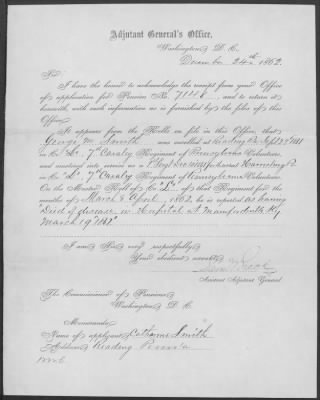 Adjutant General's Office,
Washington, D. C.
December 24th 1862.
Sir:
I have the honor to acknowledge the receipt from your Office
of application for Pension No. and to return it
herewith, with such information as is furnished by the files of this
Office.
It appears from the Rolls on file in this Office, that
George M. Smith was enrolled at Reading Pa Sept
in Co. "L" 7" Cavalry Regiment of Pennsylvania Volunteers,
and mustered into service as a at Harrisburg Pa
in Co. "L" 7" Cavalry Regiment of Pennsylvania Volunteers.
On the Muster Roll of Co. "L" of that Regiment for the
months of March & April, 1862, he is reported as having
Died of disease in Hospital at Munfordville Ky
March 19" 1862.
I am, Sir, very respectfully,
Your obedient servant,
Assistant Adjutant General.
The Commissioner of Pensions,
Washington, D. C.
Memoranda:
Name of applicant, Catharine Smith
Address, Reading Penn'a